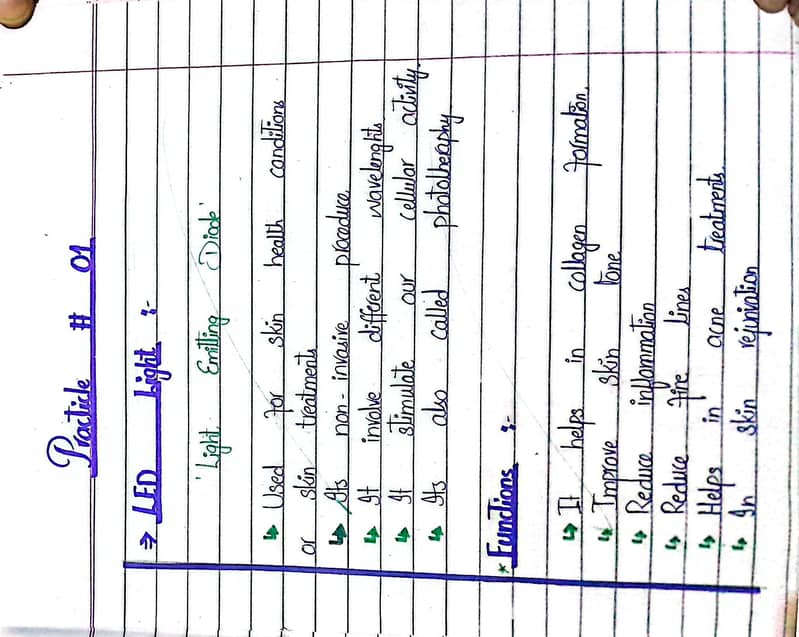 Practicle # 01
⇒ LED Light :-
'Light Emitting Diode'
↳ Used for skin health conditions
or skin treatments
↳ Its non-invasive procedure.
↳ It involve different wavelenghts
↳ It stimulate our cellular activity.
↳ Its also called phototheraphy
* Functions :-
↳ It helps in collagen formation.
↳ Improve skin tone.
↳ Reduce inflammation
↳ Reduce fine lines
↳ Helps in acne treatments.
↳ In skin rejuniation